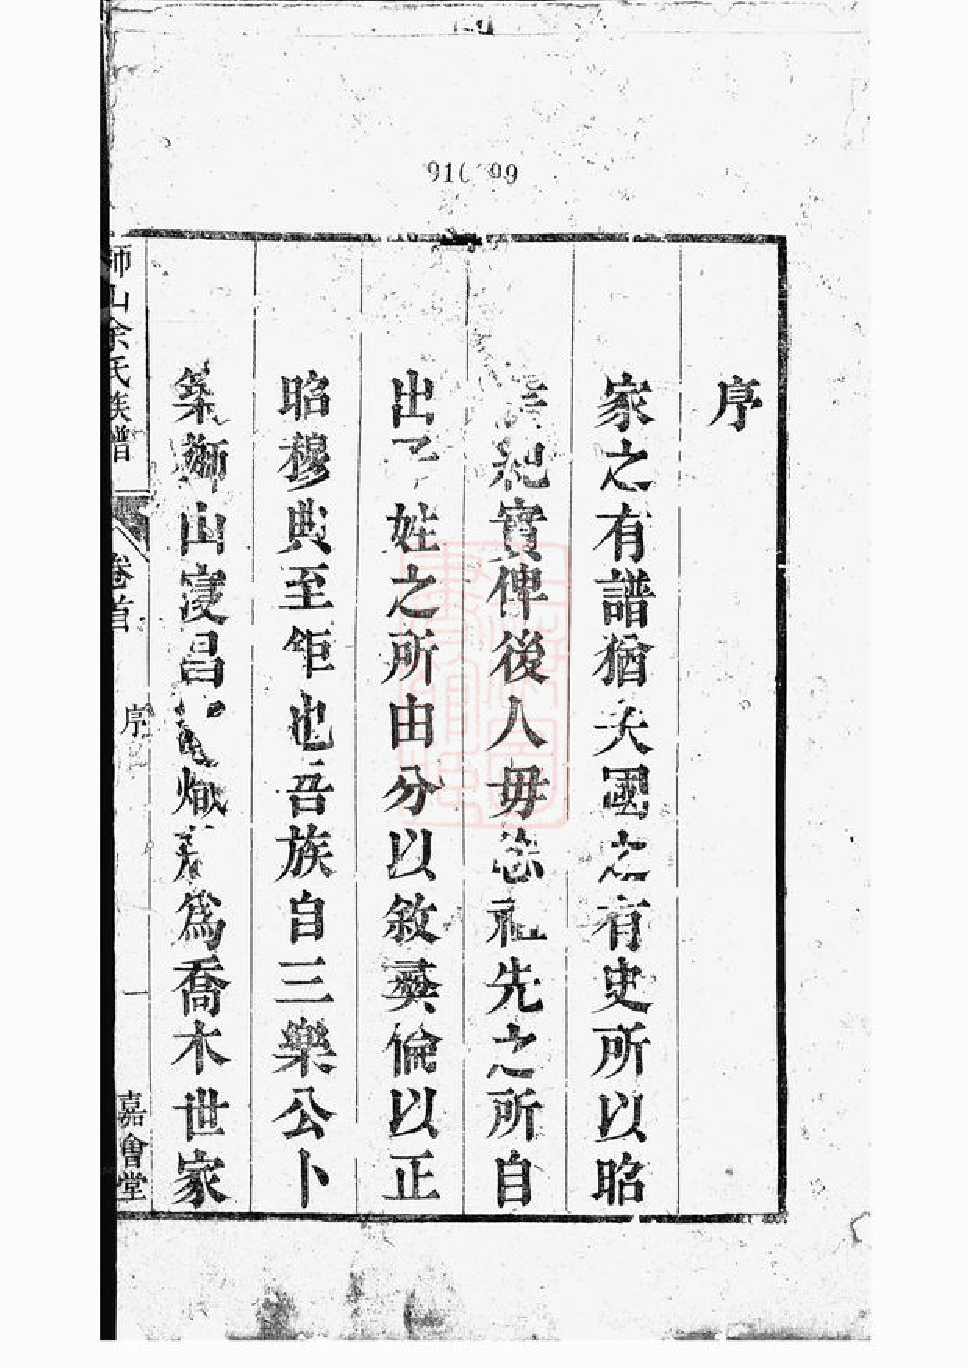 序
家之有譜猶夫國之有史所以昭
紀實俾後人毋忘祖先之所自
出 姓之所由分以敘彞倫以正
昭穆典至鉅也吾族自三樂公卜
築獅山寖昌熾 為喬木世家
師山余氏族譜
卷首
序
一
嘉會堂